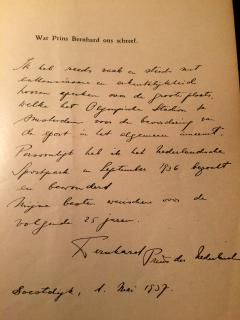 Wat Prins Bernhard ons schreef.
Ik heb reeds vaak en steeds met
enthousiasme en erkentelijkheid
hooren spreken over de groote plaats,
welke het Olympische Stadion te
Amsterdam voor de bevordering van
de sport in het algemeen inneemt.
Persoonlijk heb ik het Nederlandsche
Sportpark in September 1936 bezocht
en bewonderd
Mijne beste wenschen voor de
volgende 25 jaren.
Bernhard
Prins der Nederlanden
Soestdijk, 1. Mei 1937.